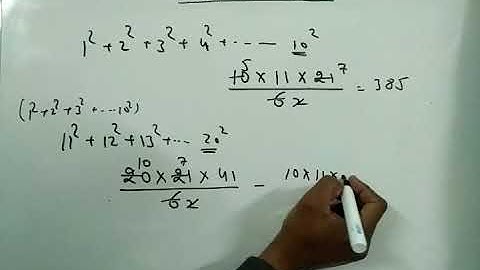 1² + 2² + 3² + 4² + ---- 10²
10⁵ × 11 × 21⁷
6 2 = 385
(1² + 2² + 3² + ---- 10²)
11² + 12² + 13² + --- 20²
20¹⁰ × 21⁷ × 41 − 10 × 11 ×
6 2